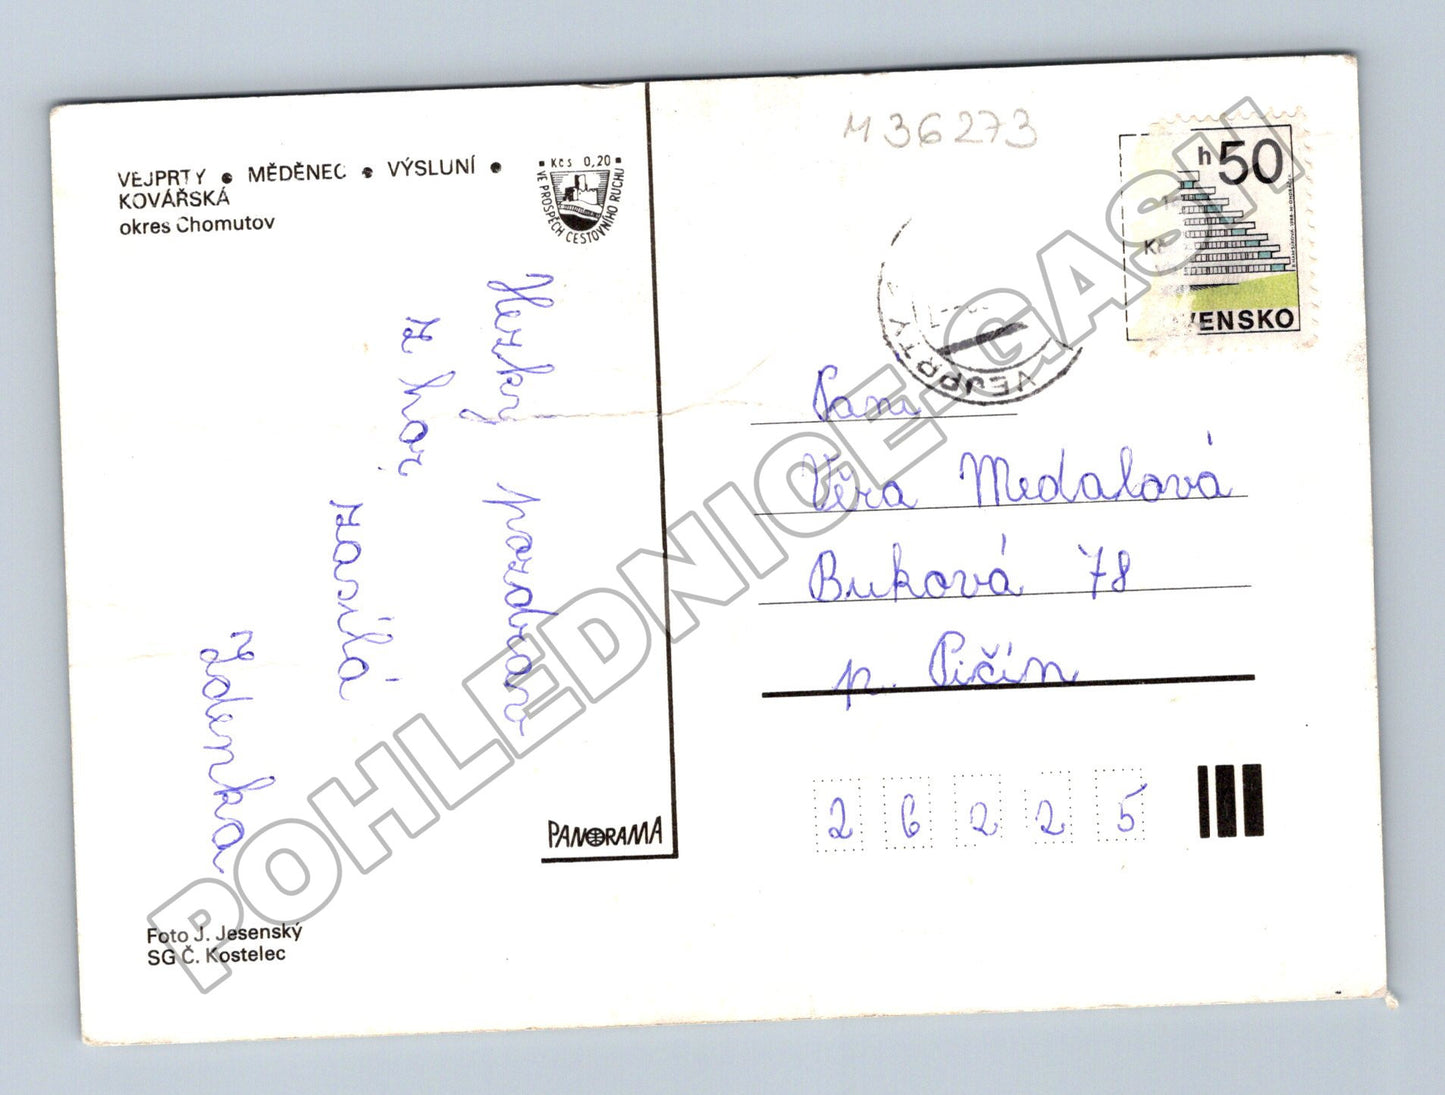 VEJPRTY • MĚDĚNEC • VÝSLUNÍ •
KOVÁŘSKÁ
okres Chomutov
Kčs 0,20
VE PROSPĚCH CESTOVNÍHO RUCHU
Hezký pozdrav
z hor
zasílá
Zdenka
Foto J. Jesenský
SG Č. Kostelec
PANORAMA
M36273
h 50
VENSKO
VEJPRTY
Paní
Věra Medalová
Buková 78
p. Pičín
26225
POHLEDNICE-GASH